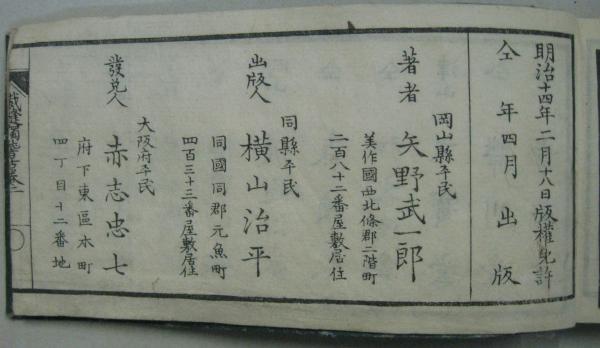 明治十四年二月十八日版權免許
仝年四月出版
岡山縣平民
著者 矢野武一郎
美作國西北條郡二階町
二百八十二番屋敷居住
同縣平民
出版人 横山治平
同國同郡元魚町
四百三十三番屋敷居住
大阪府平民
發兌人 赤志忠七
府下東區本町
四丁目十二番地